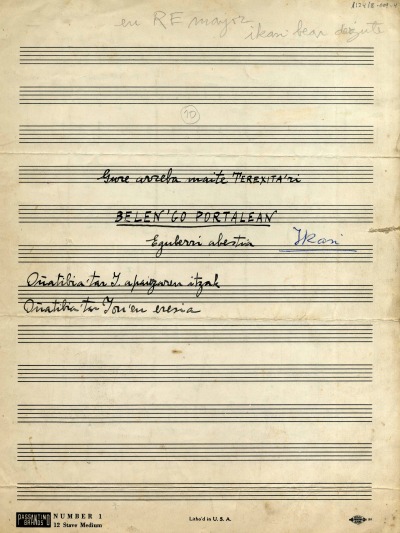 en RE mayor
ikasi bear dezute
10
Gure arreba maite TEREXITA'ri
BELEN'GO PORTALEAN
Eguberri abestia
Ikasi
Oñatibia'tar Y. apaizaren itzak
Oñatibia'tar Jon'en eresia
PASSANTINO BRANDS
NUMBER 1
12 Stave Medium
Litho'd in U. S. A.